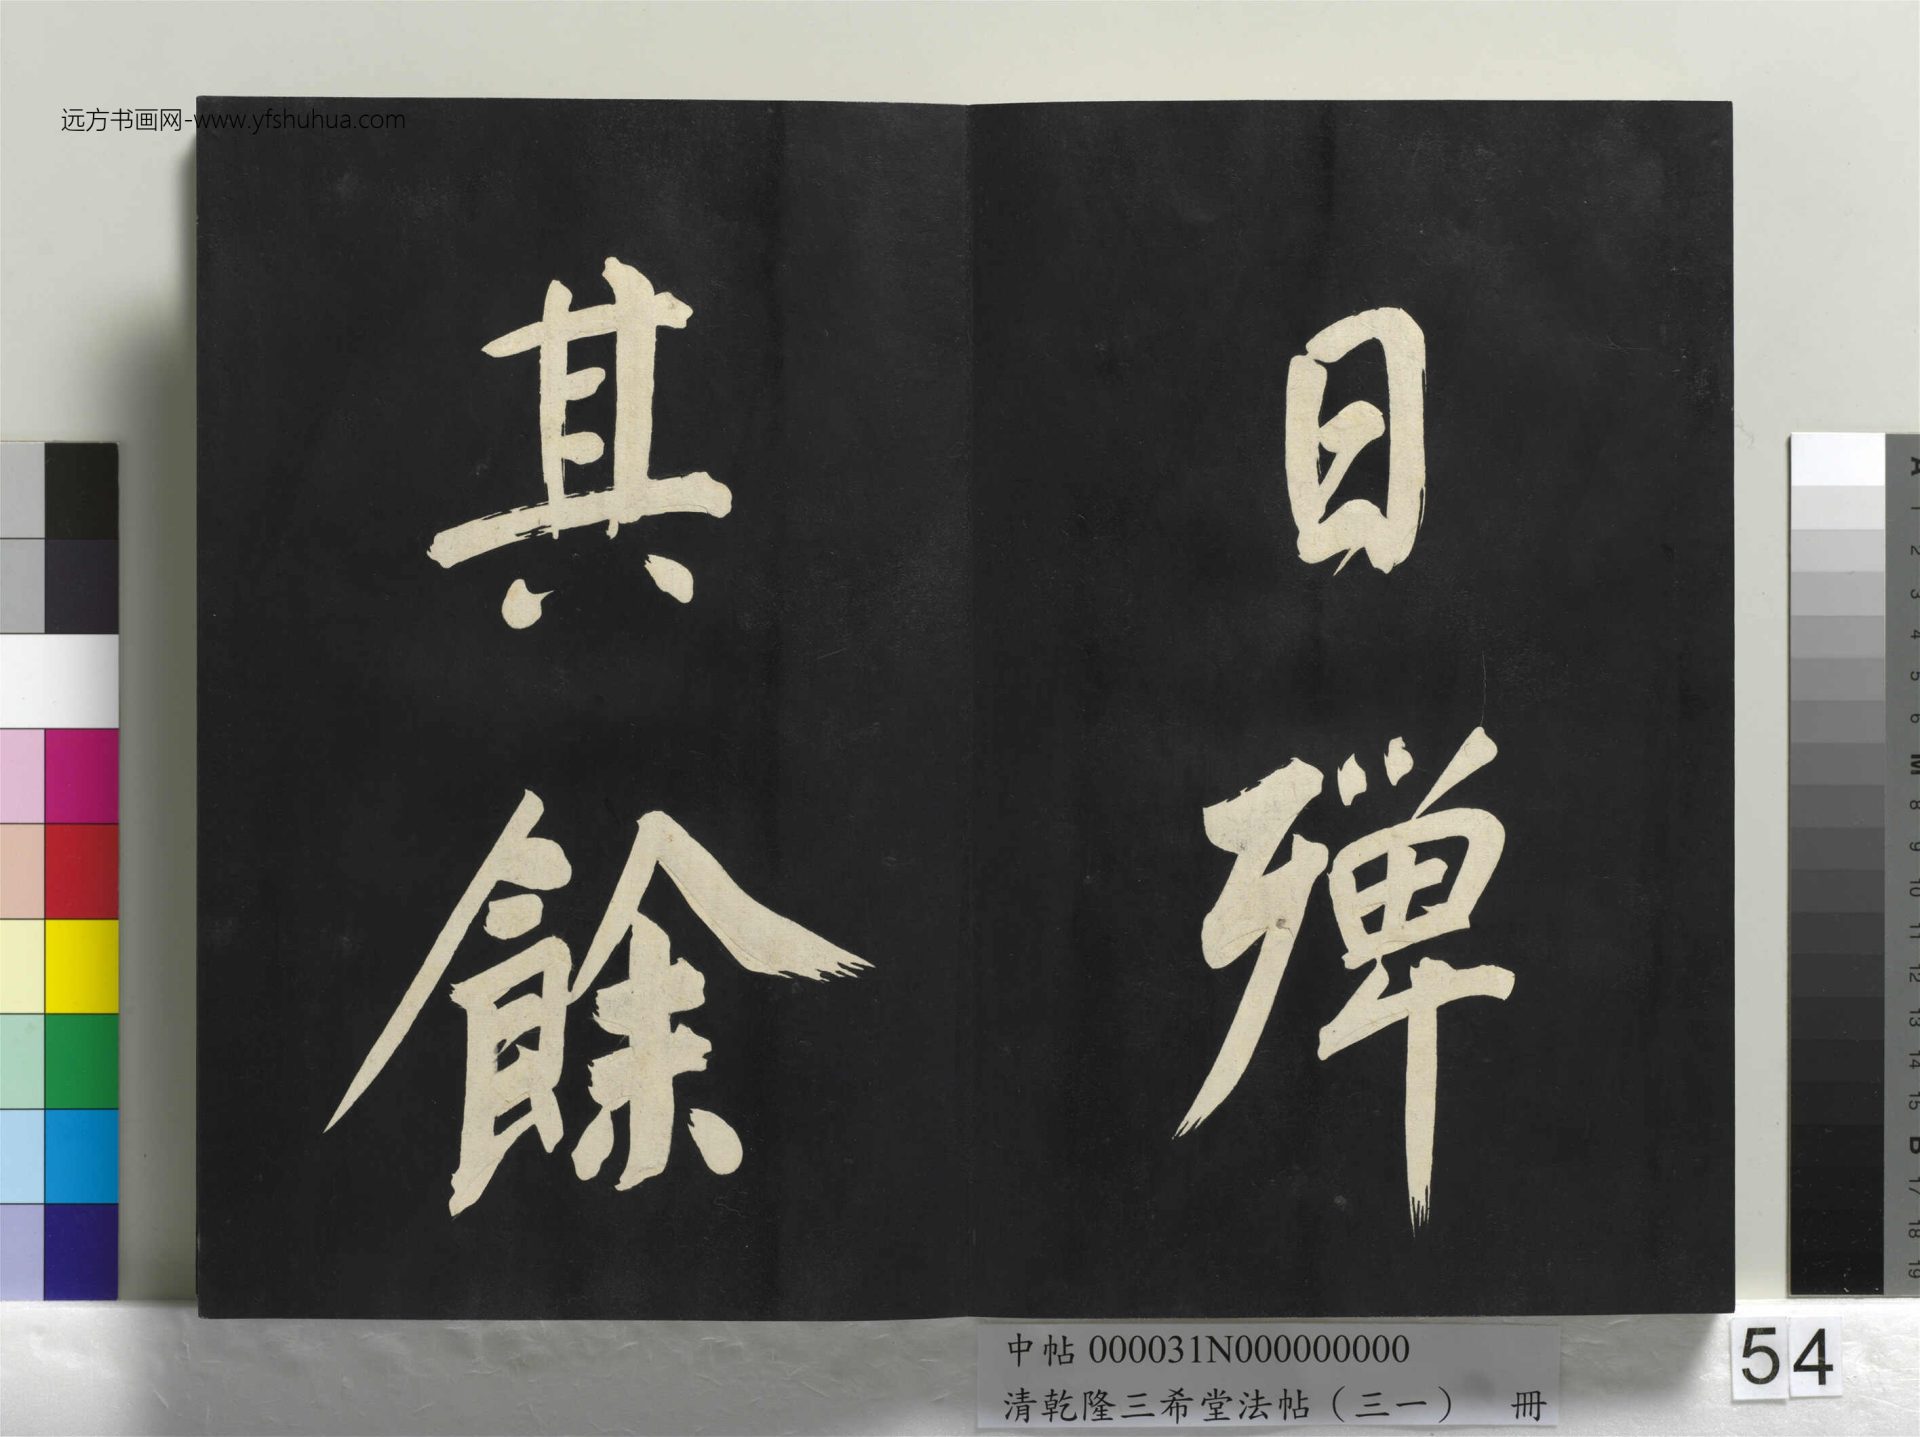 远方书画网-www.yfshuhua.com
目殫
其餘
A 1 2 3 4 5 6 M 8 9 10 11 12 13 14 15 B 17 18 19
中帖 000031N000000000
清乾隆三希堂法帖（三一） 冊
54